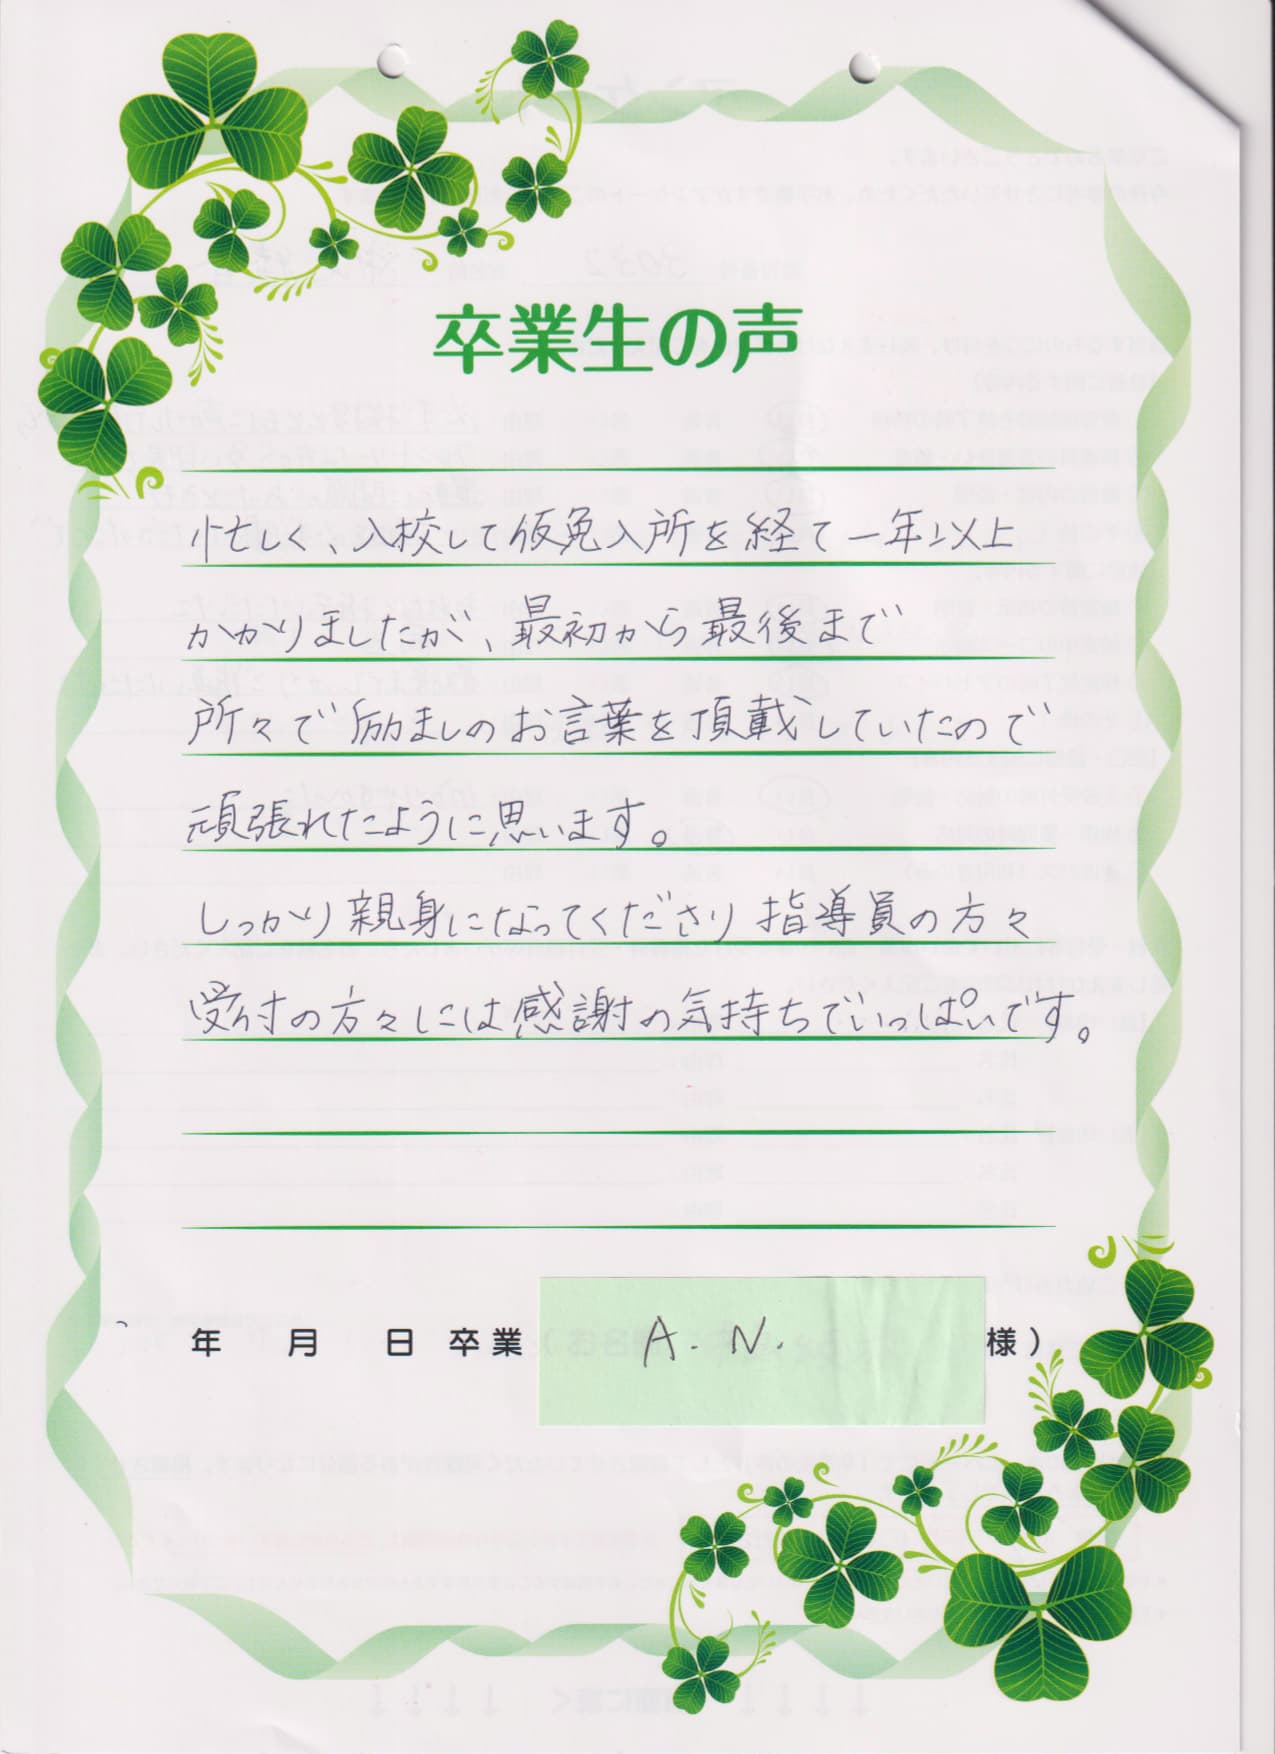 卒業生の声
忙しく、入校して仮免入所を経て一年以上
かかりましたが、最初から最後まで
所々で励ましのお言葉を頂戴していたので
頑張れたように思います。
しっかり親身になってくださり指導員の方々
受付の方々には感謝の気持ちでいっぱいです。
年 月 日 卒業( A.N. 様)